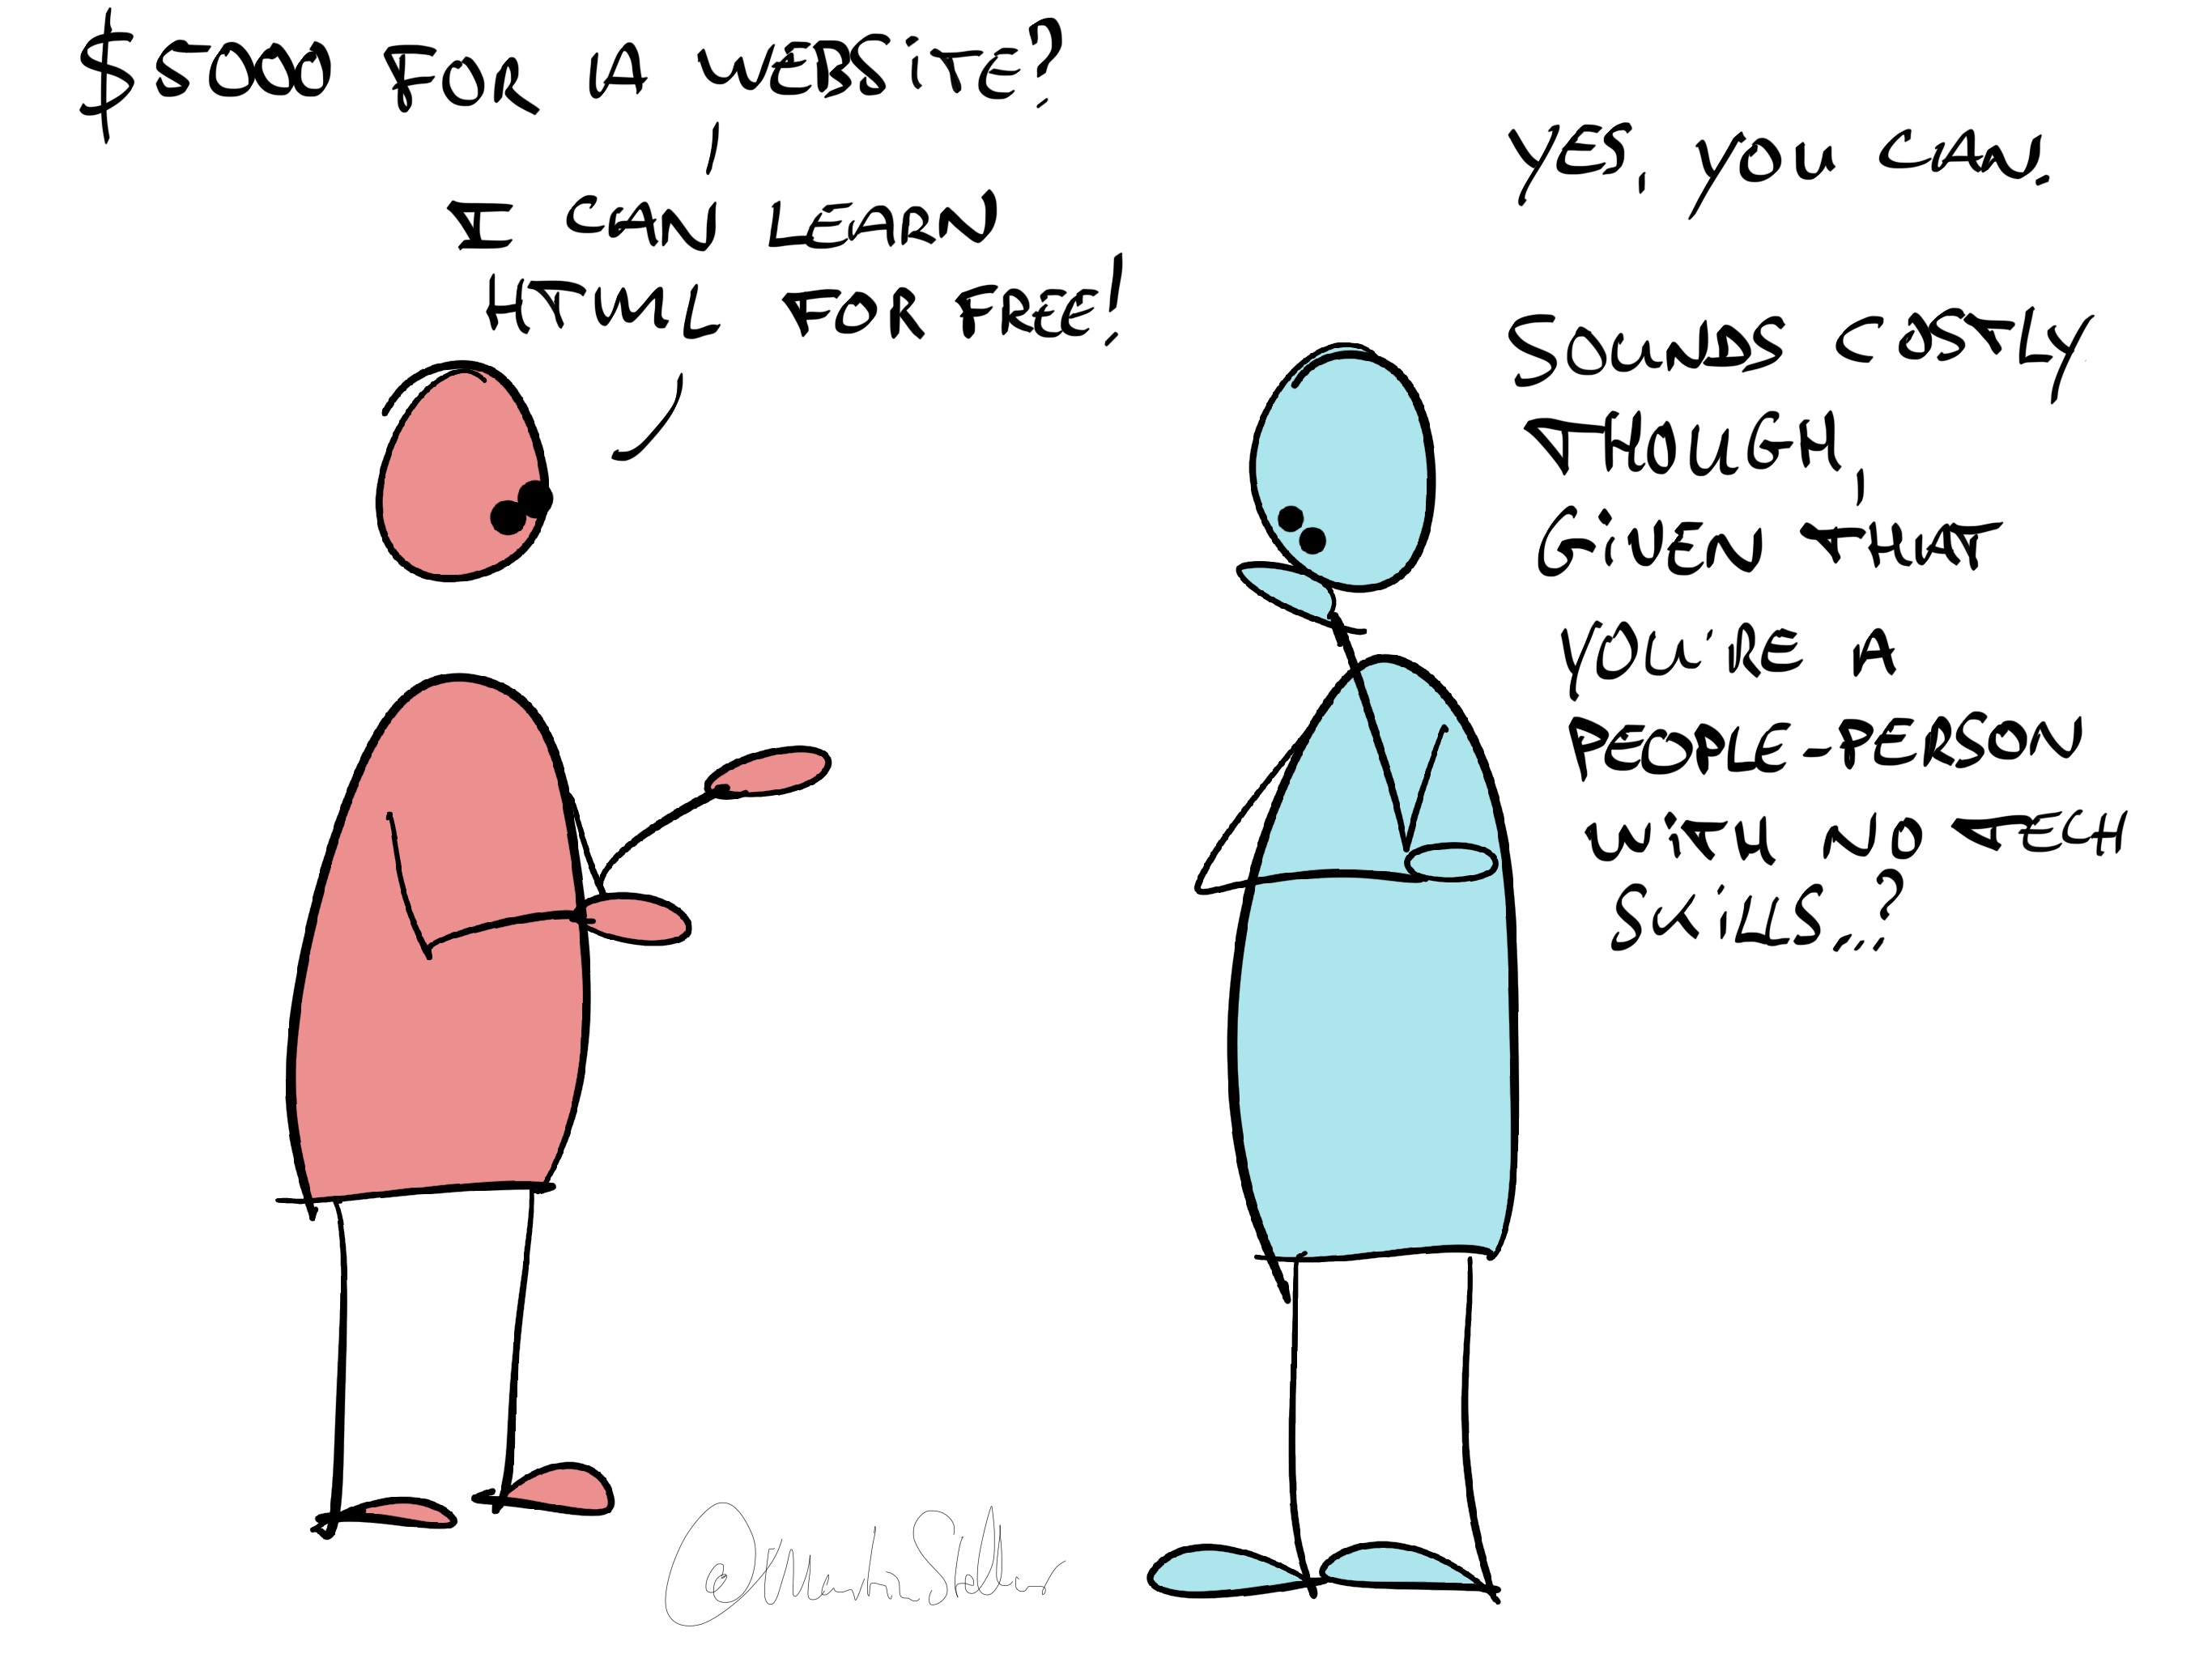 $5000 FOR A WEBSITE?
I CAN LEARN
HTML FOR FREE!
YES, YOU CAN.
SOUNDS COSTLY
THOUGH,
GIVEN THAT
YOU'RE A
PEOPLE-PERSON
WITH NO TECH
SKILLS...?